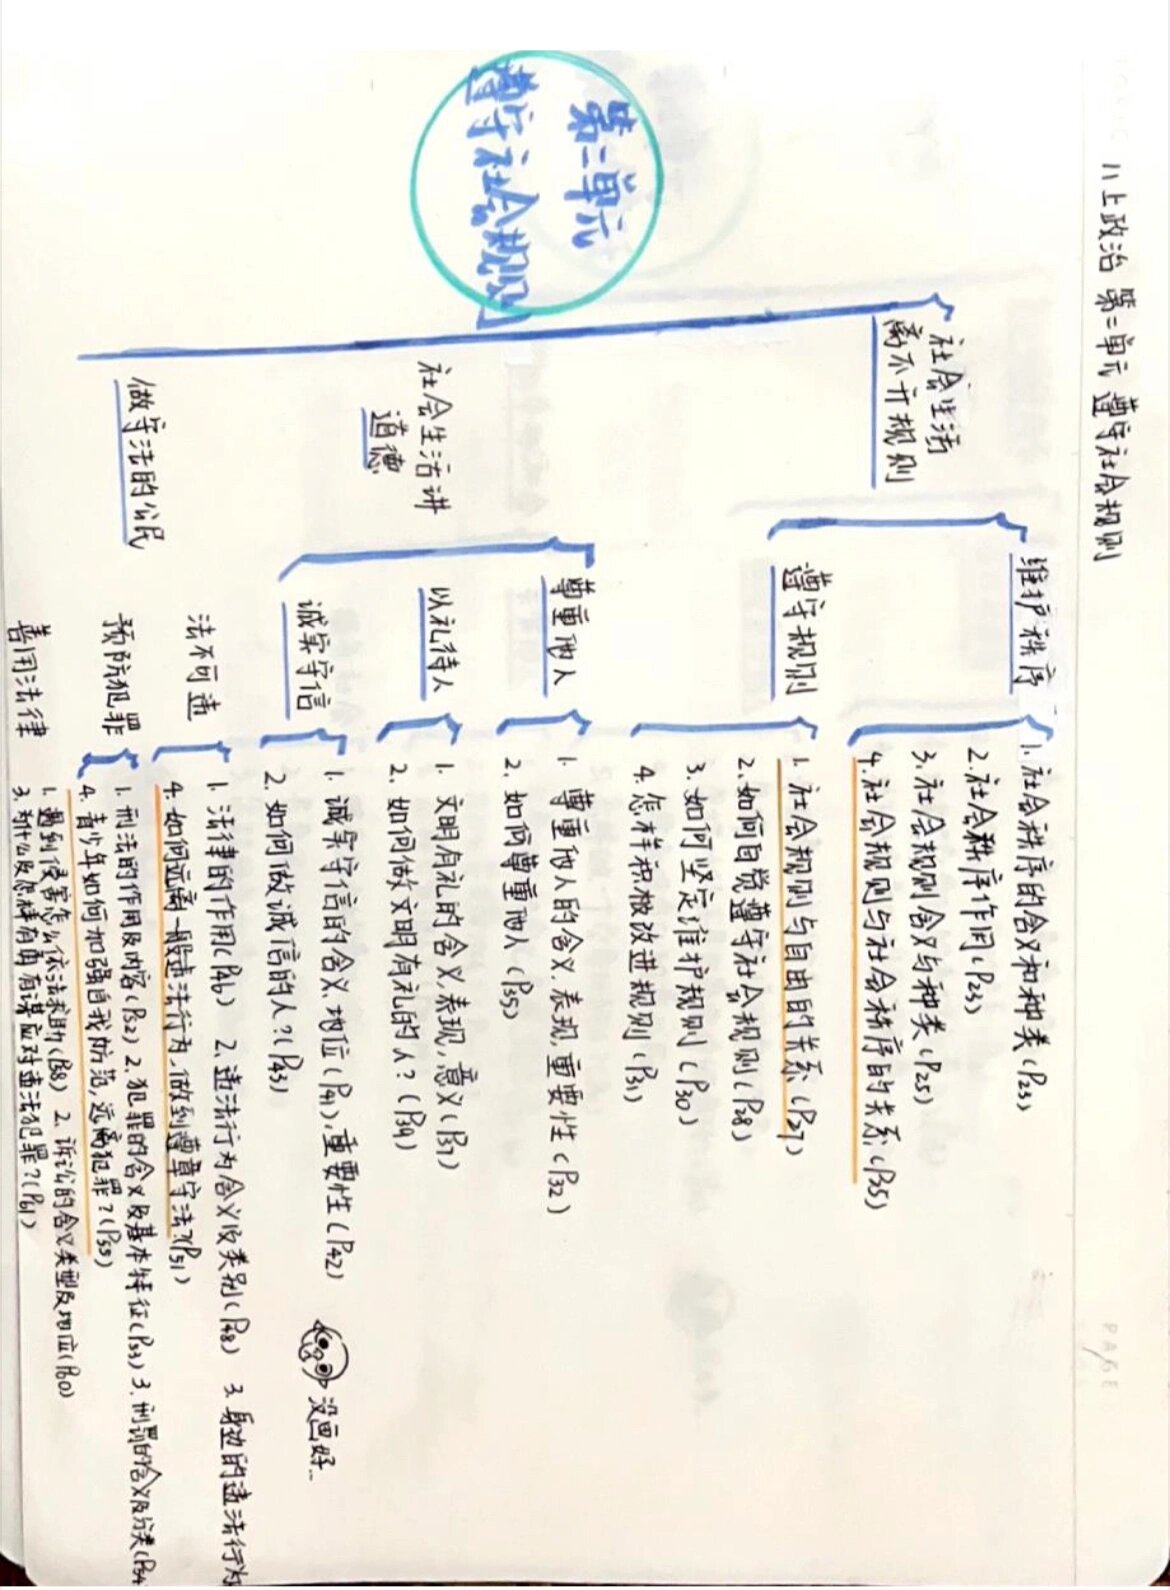 八上政治 第二单元 遵守社会规则
第二单元
遵守社会规则
社会生活
离不开规则
维护秩序
1. 社会秩序的含义和种类(P23)
2. 社会秩序作用(P23)
3. 社会规则含义与种类(P25)
4. 社会规则与社会秩序的关系(P35)
遵守规则
1. 社会规则与自由的关系(P27)
2. 如何自觉遵守社会规则(P28)
3. 如何坚定维护规则(P30)
4. 怎样积极改进规则(P31)
社会生活讲
道德
尊重他人
1. 尊重他人的含义、表现、重要性(P32)
2. 如何尊重他人(P35)
以礼待人
1. 文明有礼的含义,表现,意义(P37)
2. 如何做文明有礼的人?(P39)
诚实守信
1. 诚实守信的含义、地位(P41),重要性(P42)
2. 如何做诚信的人?(P43)
没画好..
做守法的公民
法不可违
1. 法律的作用(P46) 2. 违法行为含义及类别(P48) 3. 身边的违法行为
4. 如何远离一般违法行为,做到遵章守法?(P51)
预防犯罪
1. 刑法的作用及内容(P52) 2. 犯罪的含义及基本特征(P53) 3. 刑罚的含义及分类(P54
4. 青少年如何加强自我防范,远离犯罪?(P55)
善用法律
1. 遇到侵害怎么依法求助(P58) 2. 诉讼的含义类型及地位(P60)
3. 为什么及怎样有勇有谋应对违法犯罪?(P61)
PAGE